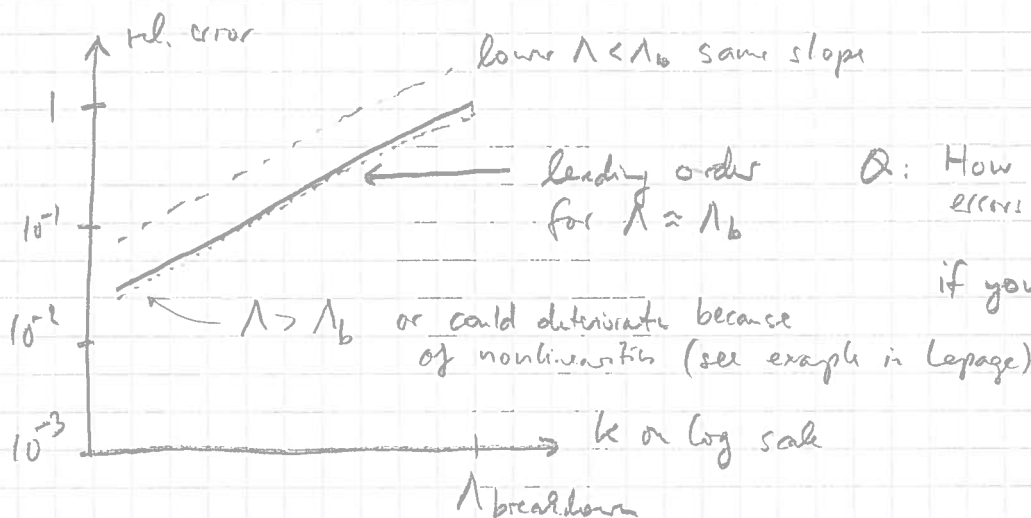 rel. error
lower Λ < Λb same slope
1
leading order
for Λ ≈ Λb
Q: How
errors
10⁻¹
if you
Λ > Λb or could deteriorate because
of nonlinearities (see example in Lepage)
10⁻²
10⁻³
k on log scale
Λbreakdown